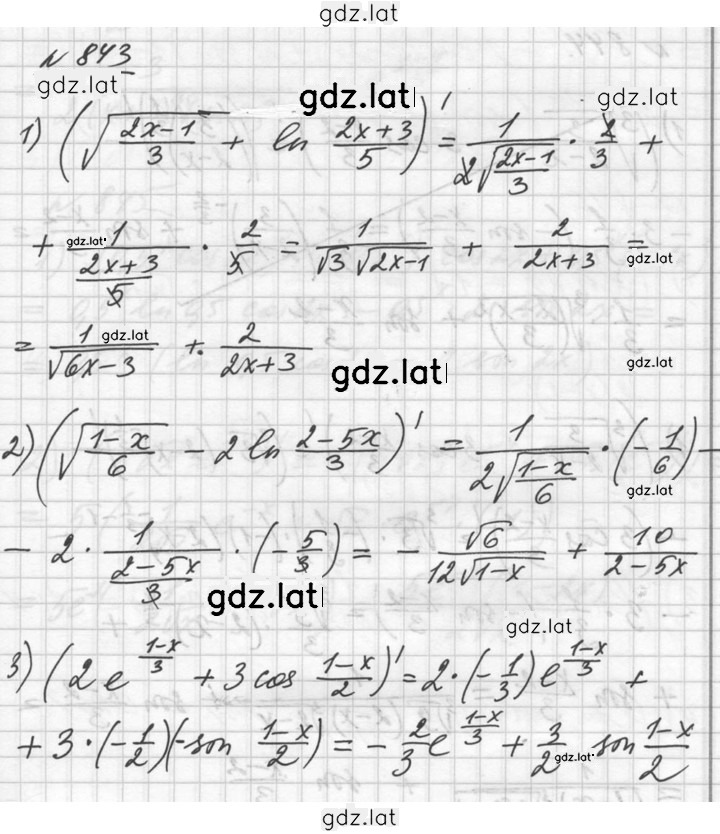 gdz.lat
№ 843
gdz.lat
gdz.lat
1) (√((2x-1)/3) + ln (2x+3)/5)' = 1/(2√((2x-1)/3)) · 2/3 +
+ 1/((2x+3)/5) · 2/5 = 1/(√3 √(2x-1)) + 2/(2x+3) =
gdz.lat
gdz.lat
= 1/√(6x-3) + 2/(2x+3)
gdz.lat
gdz.lat
gdz.lat
2) (√((1-x)/6) - 2 ln (2-5x)/3)' = 1/(2√((1-x)/6)) · (-1/6) -
gdz.lat
- 2 · 1/((2-5x)/3) · (-5/3) = - √6/(12√(1-x)) + 10/(2-5x)
gdz.lat
gdz.lat
3) (2e^((1-x)/3) + 3 cos (1-x)/2)' = 2 · (-1/3) e^((1-x)/3) +
+ 3 · (-1/2)(-sin (1-x)/2) = - 2/3 e^((1-x)/3) + 3/2 sin (1-x)/2
gdz.lat
gdz.lat